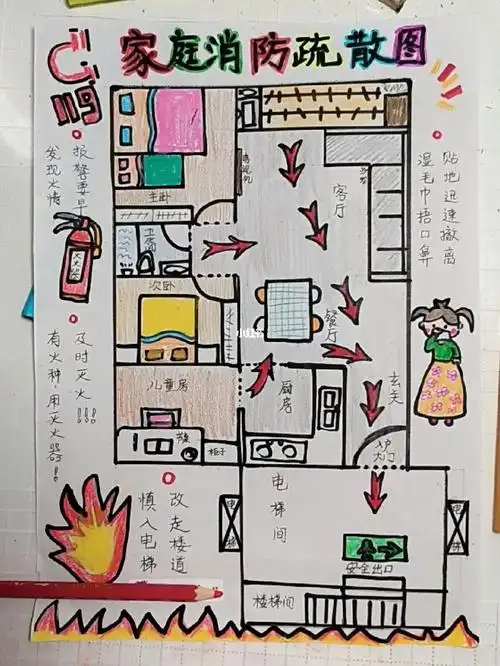 家庭消防疏散图
119
发现火情
报警要早
灭火器
有火种!用灭火器!
及时灭火!!!
主卧
卫生间
次卧
儿童房
书桌
柜子
客厅
餐厅
厨房
玄关
入户
大门
贴地迅速撤离
湿毛巾捂口鼻
小红书
慎入电梯
改走楼道
电梯间
电梯
电梯
安全出口
楼梯间